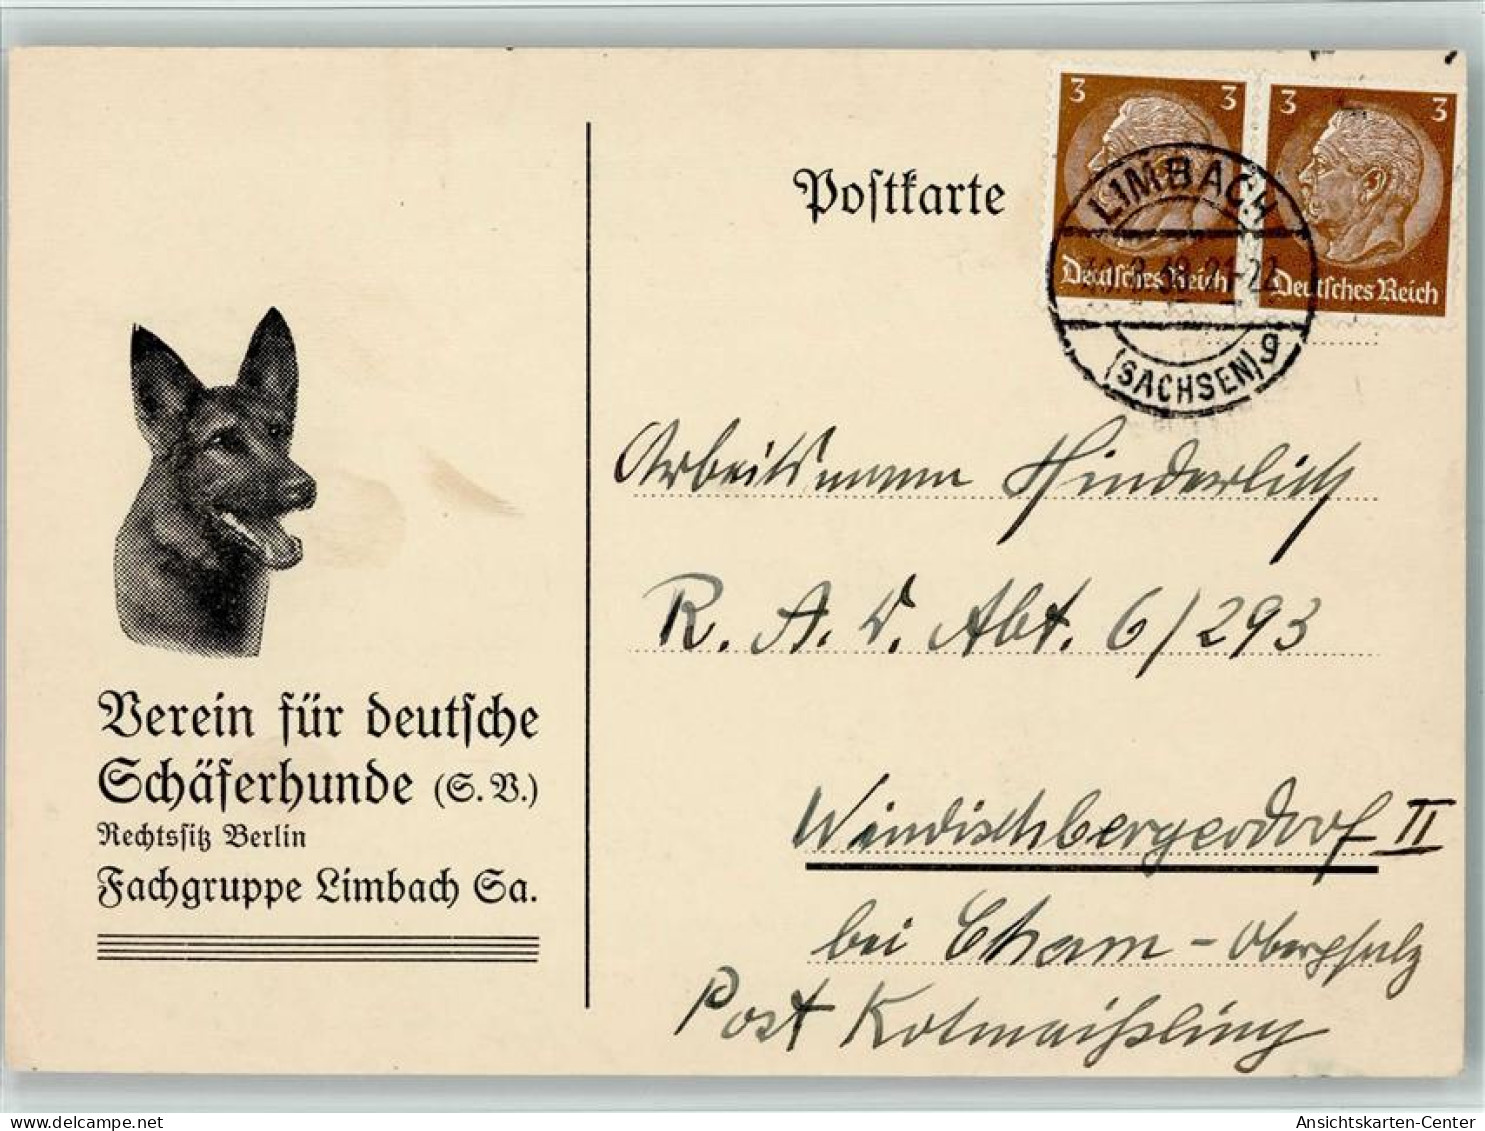 Postkarte
3 3
Deutsches Reich
3 3
Deutsches Reich
LIMBACH
21-22
(SACHSEN) g
Arbeitsmann Hinderlich
R. A. D. Abt. 6/293
Windischbergerdorf II
bei Cham - Oberpfalz
Post Kolmaißling
Verein für deutsche
Schäferhunde (S. V.)
Rechtssitz Berlin
Fachgruppe Limbach Sa.
delcampe.net
Ansichtskarten-Center